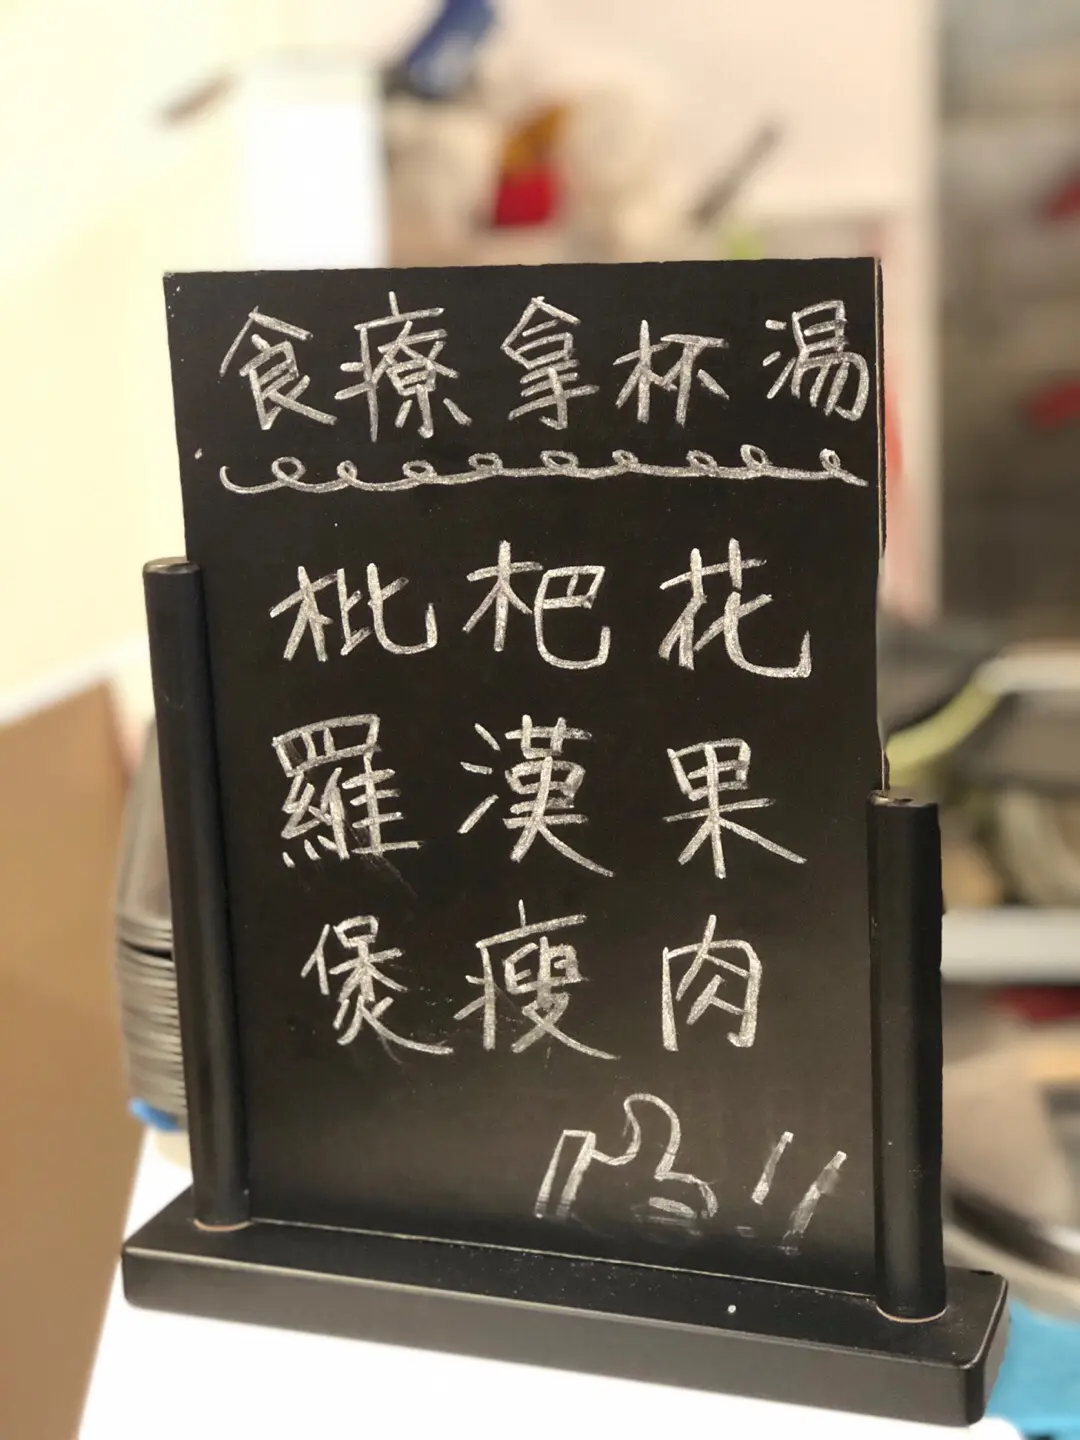 食療拿杯湯
枇杷花
羅漢果
煲瘦肉